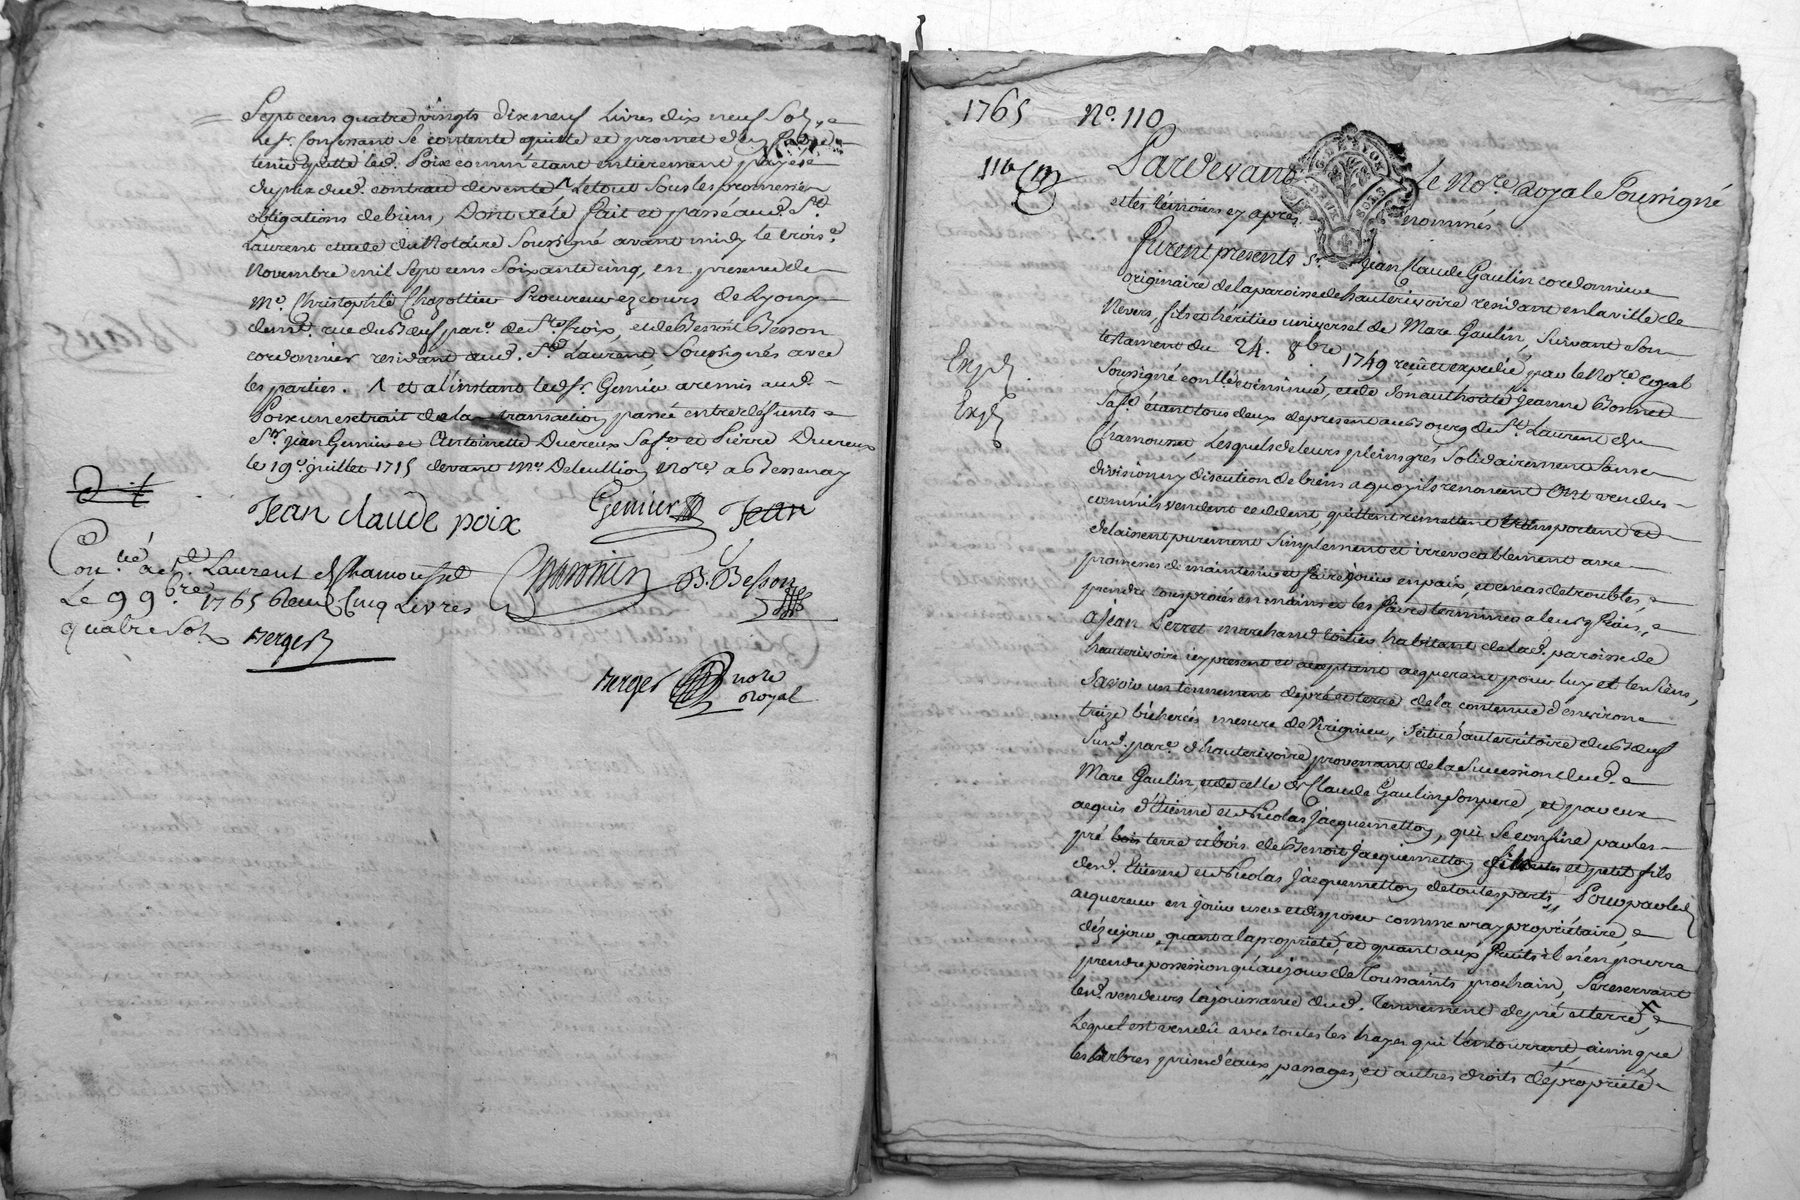 Sept cens quatre vingts dix neuf Livres dix neuf Sols,
le sr. Confessant se contente quitte et promet
tenir quitte led. Poix comm'etant entierement payé
du prix dud. contrat de vente Λ Le tout sous les promesses
obligations de biens, Dont acte fait et passé aud. St.
Laurent etude du Notaire Soussigné avant midy le trois.e
Novembre mil Sept cens Soixante cinq, en presence de
Me. Christophle Chazottier Procureur ez cours de Lyon,
demt. rue du Boeuf par.e de Ste. Croix, et de Benoit Besson
cordonnier residant aud. St. Laurent, Soussignés avec
les parties. Λ et a l'instant led. Sr. Genier a remis aud.
Poix un extrait de la transaction passée entre defunts
Srs. jean Genier et Antoinette Ducreux Sa fe. et Pierre Ducreux
le 19e. juillet 1715 devant Me. Deleullion Nore. a Bessenay
Jean claude poix
Genier
Jean
B. Besson
Con.lé a St. Laurent de Chamousset
Le 9 9bre 1765 Reçu Cinq Livres
quatre Sols
Berger
Berger nore
royal
1765
No. 110
110
Pardevant le Nore. royal Soussigné
et les témoins cy après nommés
Furent presents Sr. jean Claude Gaulin cordonnier
originaire de la paroisse de hauterivoire residant en la ville de
Nevers, fils et héritier universel de Marc Gaulin, Suivant Son
testament du 24. 8bre 1749 reçu et expedié par le Nore. royal
Expd.
Soussigné conllé et insinué, et de Son authorité Jeanne Bonnet
Expd.
Sa fe. étant tous deux de present au Bourg de St. Laurent de
Chamousset, Lesquels de leurs pleins grés Solidairement Sans
division ny discution de biens a quoy ils renoncent Ont vendu
comm'ils vendent ceddent, quittent remettent transportent et
delaissent purement Simplement et irrevocablement avec
promesses de maintenir et faire jouir en paix, et en cas de troubles,
prendre tous procés en mains et les faire terminer a leurs frais,
a Jean Perret marchand toilier habitant de lad. paroisse de
hauterivoire icy present et acceptant acquerant pour luy et les Siens,
Savoir un tennement de pré et terre de la contenue d'environ
treize bicherées mesure de Virigneu, Scitué au territoire du Boeuf
Susd. par.e d'hauterivoire provenant de la Succession dud.
Marc Gaulin, et de celle de Claude Gaulin Son pere, et par eux
acquis d'Etienne et Nicolas Jacquemetton, qui Se confine par les
pré bois terre et bois de Benoit Jacquemetton fils et petit fils
desd. Etienne et Nicolas Jacquemetton de toutes parts, Pour par led.
acquereur en jouir user et disposer comme vray propriétaire,
dez ce jour quant a la propriété, et quant aux fruits il n'en pourra
prendre possession qu'au jour de Toussaints prochain, Se reservant
led. vendeurs la jouissance dud. Tennement de pré et terre,
Lequel est vendû avec toutes les hayes qui l'entourrent, ainsin que
les arbres prises d'eaux, passages, et autres droits de propriété